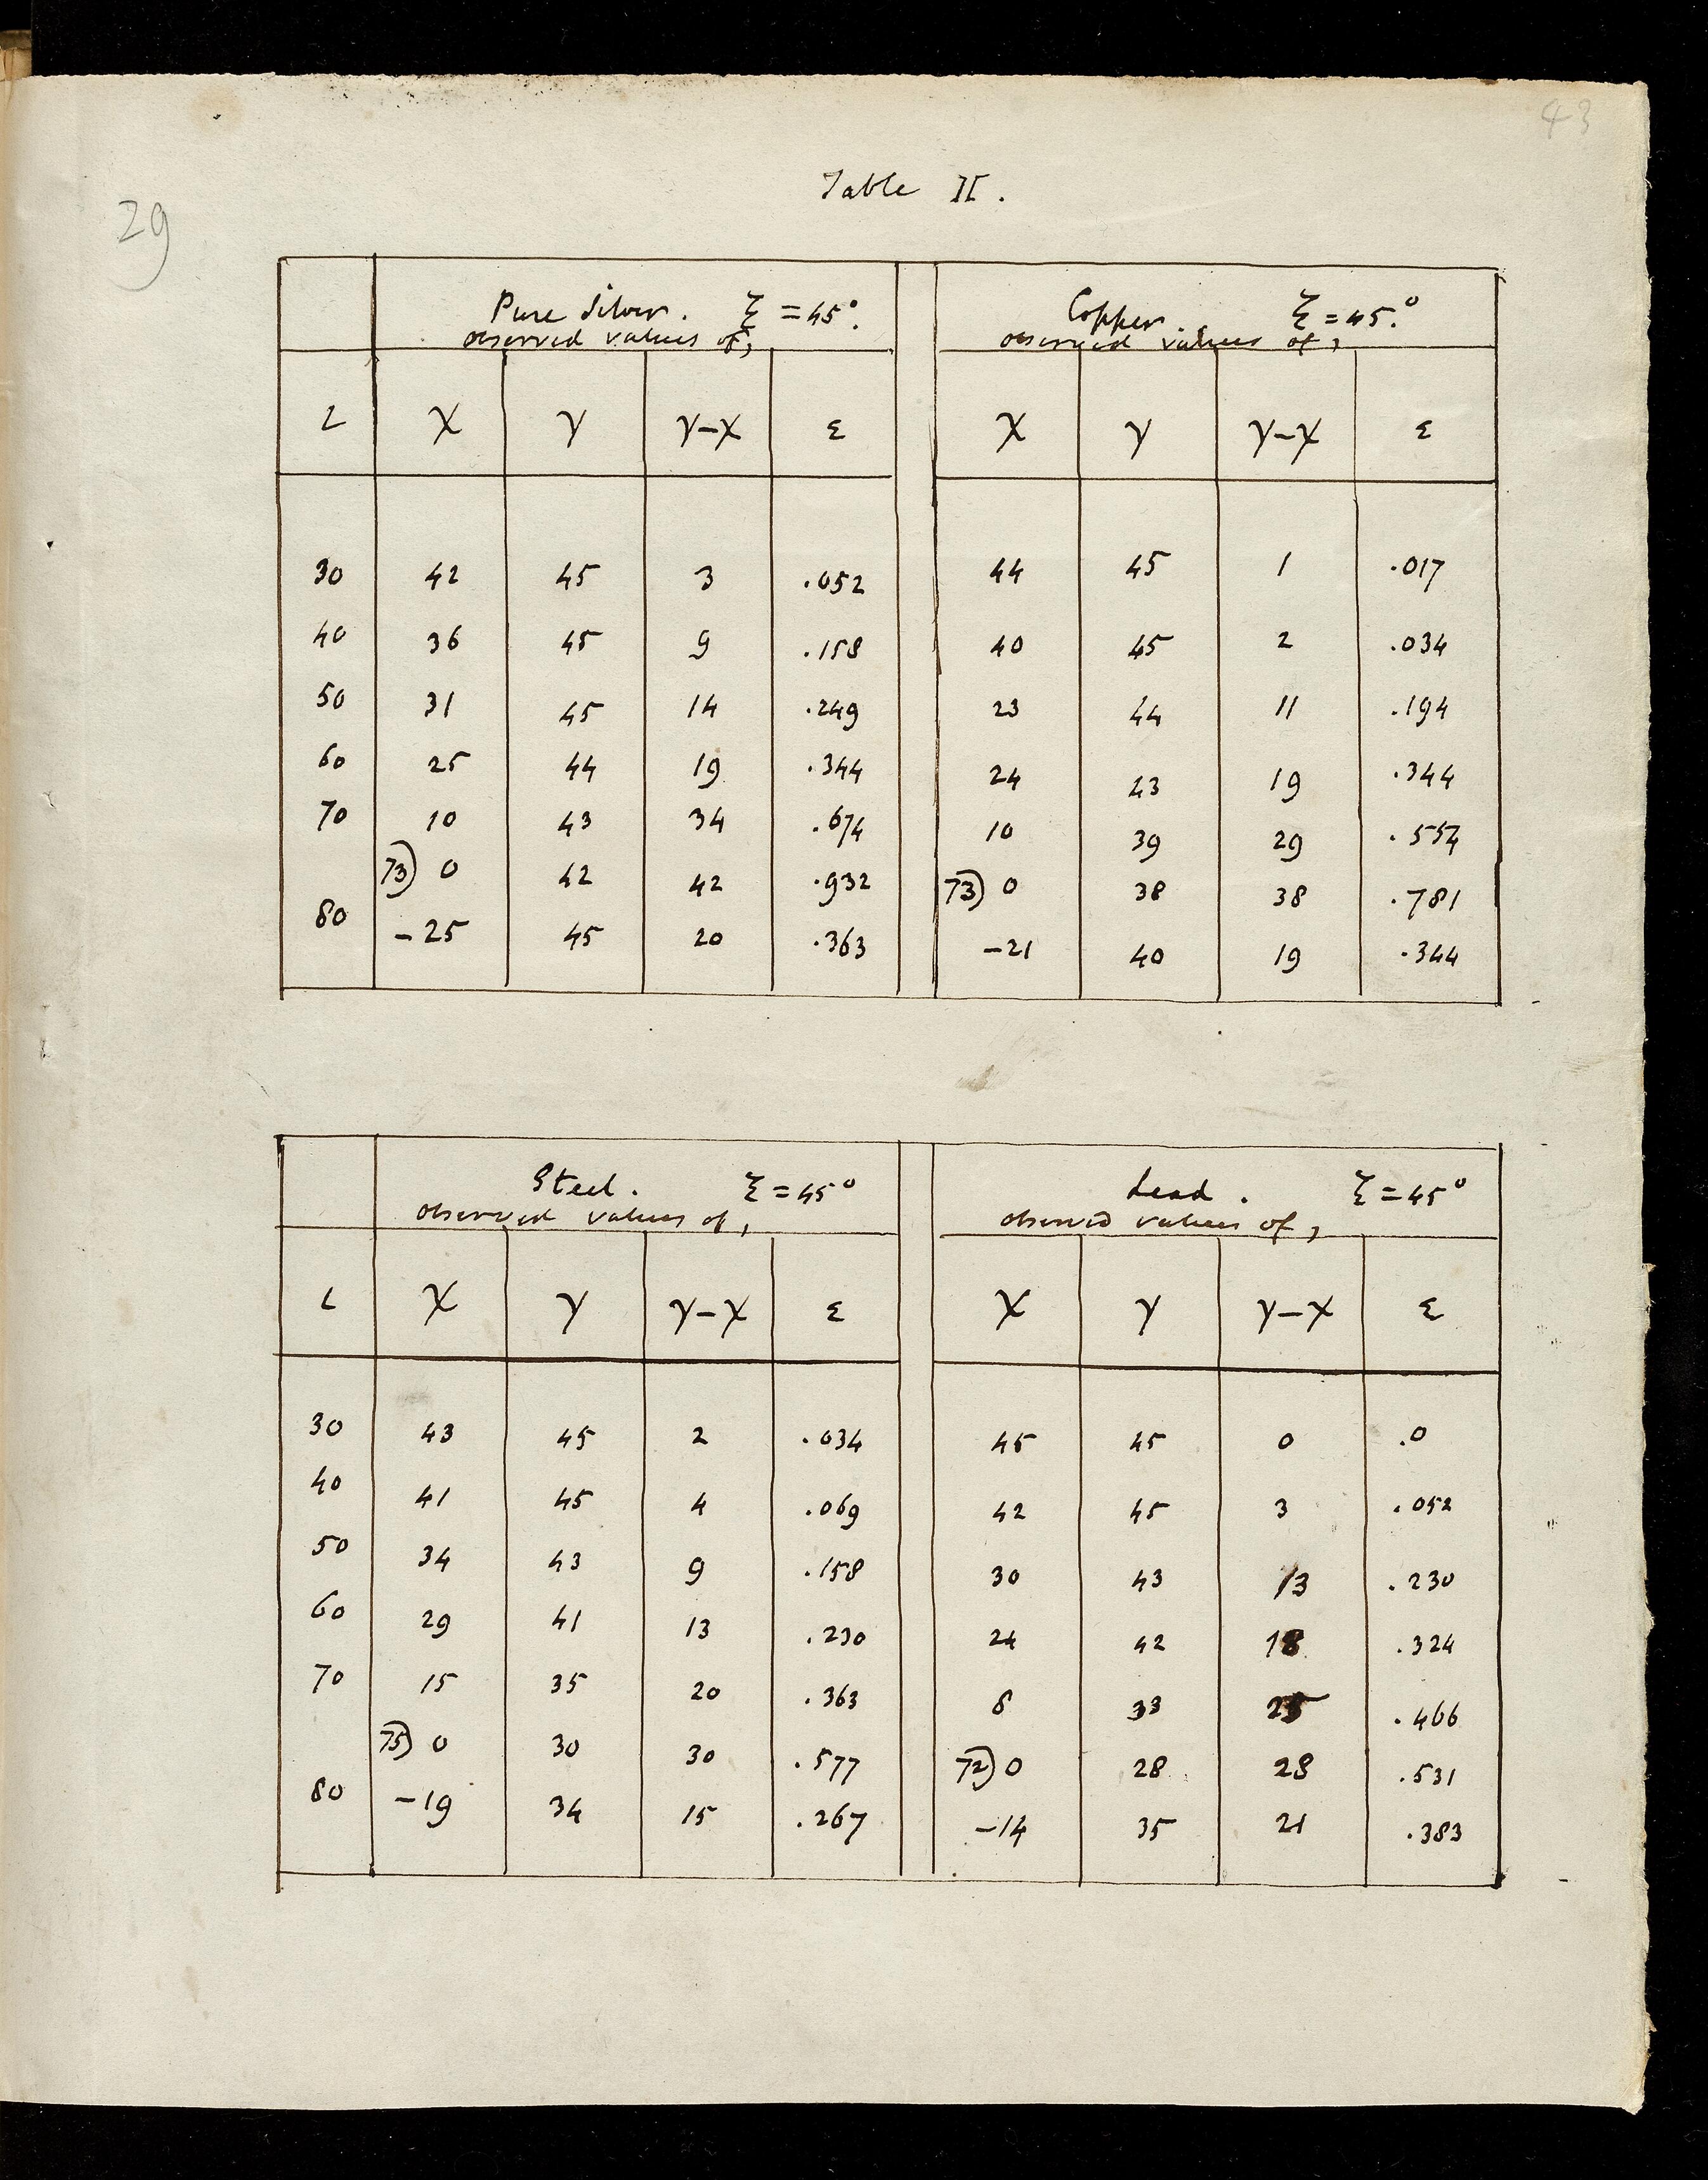 43
Table II.
29
Pure Silver. ξ = 45°. Copper. ξ = 45.°
observed values of, observed values of,
ι χ γ γ–χ ε χ γ γ–χ ε
30 42 45 3 .052 44 45 1 .017
40 36 45 9 .158 40 45 2 .034
50 31 45 14 .249 23 44 11 .194
60 25 44 19 .344 24 43 19 .344
70 10 43 34 .674 10 39 29 .554
73) 0 42 42 .932 73) 0 38 38 .781
80 –25 45 20 .363 –21 40 19 .344
Steel. ξ = 45° Lead. ξ = 45°
observed values of, observed values of,
ι χ γ γ–χ ε χ γ γ–χ ε
30 43 45 2 .034 45 45 0 .0
40 41 45 4 .069 42 45 3 .052
50 34 43 9 .158 30 43 13 .230
60 29 41 13 .230 24 42 18 .324
70 15 35 20 .363 8 33 25 .466
75) 0 30 30 .577 72) 0 28 28 .531
80 –19 34 15 .267 –14 35 21 .383